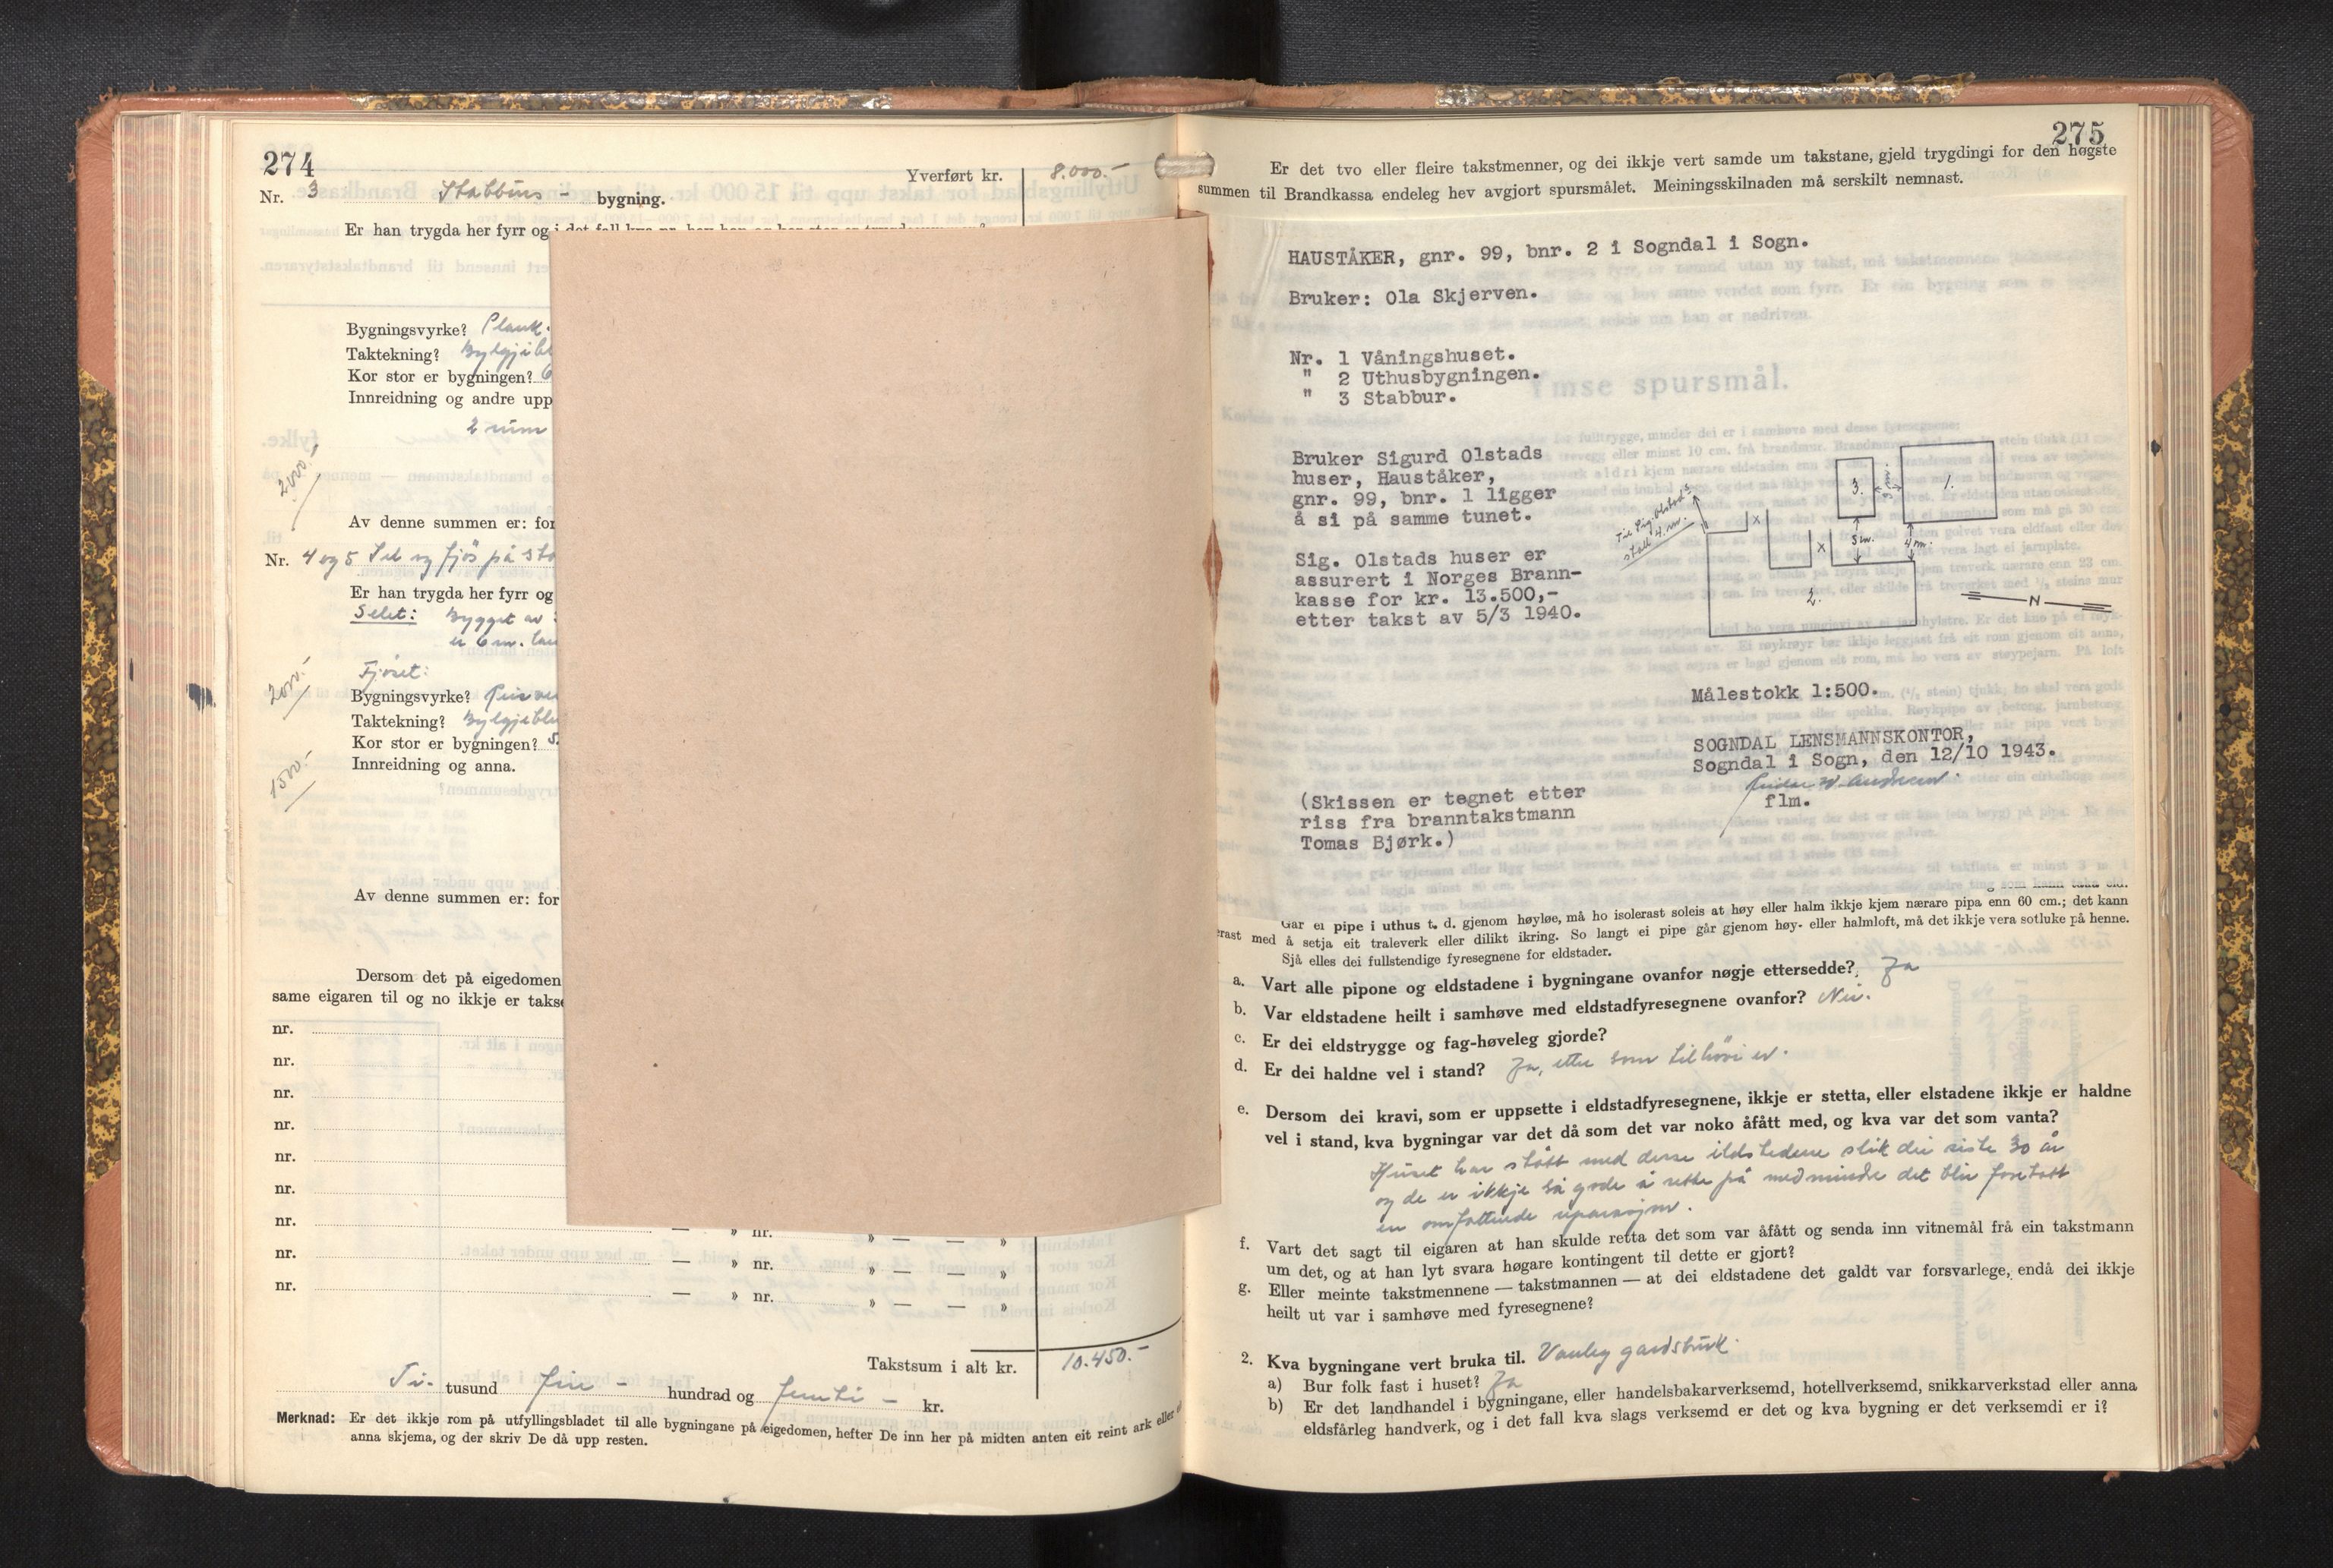 274
Yverført kr. 8.000.-
Nr. 3 Stabburs - bygning.
Er han trygda her fyrr og i det fall kva nr. hev han og kor stor er trygdesummen?
Bygningsvyrke? Plank.
Taktekning?
Kor stor er bygningen? 6
Innreidning og andre upp
2 rum
2000.-
Av denne summen er: for
Nr. 4 og 5 Sel og fjös på stø
Er han trygda her fyrr og
Selet: Bygget av
er 6 m. lan
Fjöset:
2000.-
Bygningsvyrke?
Taktekning?
Kor stor er bygningen? 5.
Innreidning og anna.
1500.-
Av denne summen er: for
Dersom det på eigedomen
same eigaren til og no ikkje er takse
nr.
nr.
nr.
nr.
nr.
nr.
nr. — » nr. » — — »
nr. — » nr. » — — »
nr. — » nr. » — — »
Takstsum i alt kr. 10.450.-
Ti - tusund fire - hundrad og femti - kr.
Merknad: Er det ikkje rom på utfyllingsbladet til alle bygningane på eigedomen, hefter De inn her på midten anten eit reint ark eller
anna skjema, og der skriv De då upp resten.
275
Er det tvo eller fleire takstmenner, og dei ikkje vert samde um takstane, gjeld trygdingi for den høgste
summen til Brandkassa endeleg hev avgjort spursmålet. Meiningsskilnaden må serskilt nemnast.
HAUSTÅKER, gnr. 99, bnr. 2 i Sogndal i Sogn.
Bruker: Ola Skjerven.
Nr. 1 Våningshuset.
" 2 Uthusbygningen.
" 3 Stabbur.
Bruker Sigurd Olstads
huser, Hauståker,
gnr. 99, bnr. 1 ligger
å si på samme tunet.
Sig. Olstads huser er
assurert i Norges Brann-
kasse for kr. 13.500,-
etter takst av 5/3 1940.
Til Sig. Olstad's
stall 4 m.
3.
3 m.
1.
x
x
5 m.
4 m.
2.
N
Målestokk 1:500.
SOGNDAL LENSMANNSKONTOR,
Sogndal i Sogn, den 12/10 1943.
flm.
(Skissen er tegnet etter
riss fra branntakstmann
Tomas Bjørk.)
Går ei pipe i uthus t. d. gjenom høyløe, må ho isolerast soleis at høy eller halm ikkje kjem nærare pipa enn 60 cm.; det kann
med å setja eit traleverk eller dilikt ikring. So langt ei pipe går gjenom høy- eller halmloft, må det ikkje vera sotluke på henne.
Sjå elles dei fullstendige fyresegnene for eldstader.
a. Vart alle pipone og eldstadene i bygningane ovanfor nøgje ettersedde? Ja
b. Var eldstadene heilt i samhøve med eldstadfyresegnene ovanfor? Nei.
c. Er dei eldstrygge og fag-høveleg gjorde?
d. Er dei haldne vel i stand? Ja, etter som tilhövi er.
e. Dersom dei kravi, som er uppsette i eldstadfyresegnene, ikkje er stetta, eller elstadene ikkje er haldne
vel i stand, kva bygningar var det då som det var noko åfått med, og kva var det som vanta?
Huset har stått med desse ildstedene slik dei siste 30 år
og de er ikkje så gode å rette på medmindre det blir foretatt
en omfattende reparasjon.
f. Vart det sagt til eigaren at han skulde retta det som var åfått og senda inn vitnemål frå ein takstmann
um det, og at han lyt svara høgare kontingent til dette er gjort?
g. Eller meinte takstmennene — takstmannen — at dei eldstadene det galdt var forsvarlege, endå dei ikkje
heilt ut var i samhøve med fyresegnene?
2. Kva bygningane vert bruka til. Vanleg gardsbruk.
a) Bur folk fast i huset? Ja
b) Er det landhandel i bygningane, eller handelsbakarverksemd, hotellverksemd, snikkarverkstad eller anna
eldsfårleg handverk, og i det fall kva slags verksemd er det og kva bygning er det verksemdi er i?